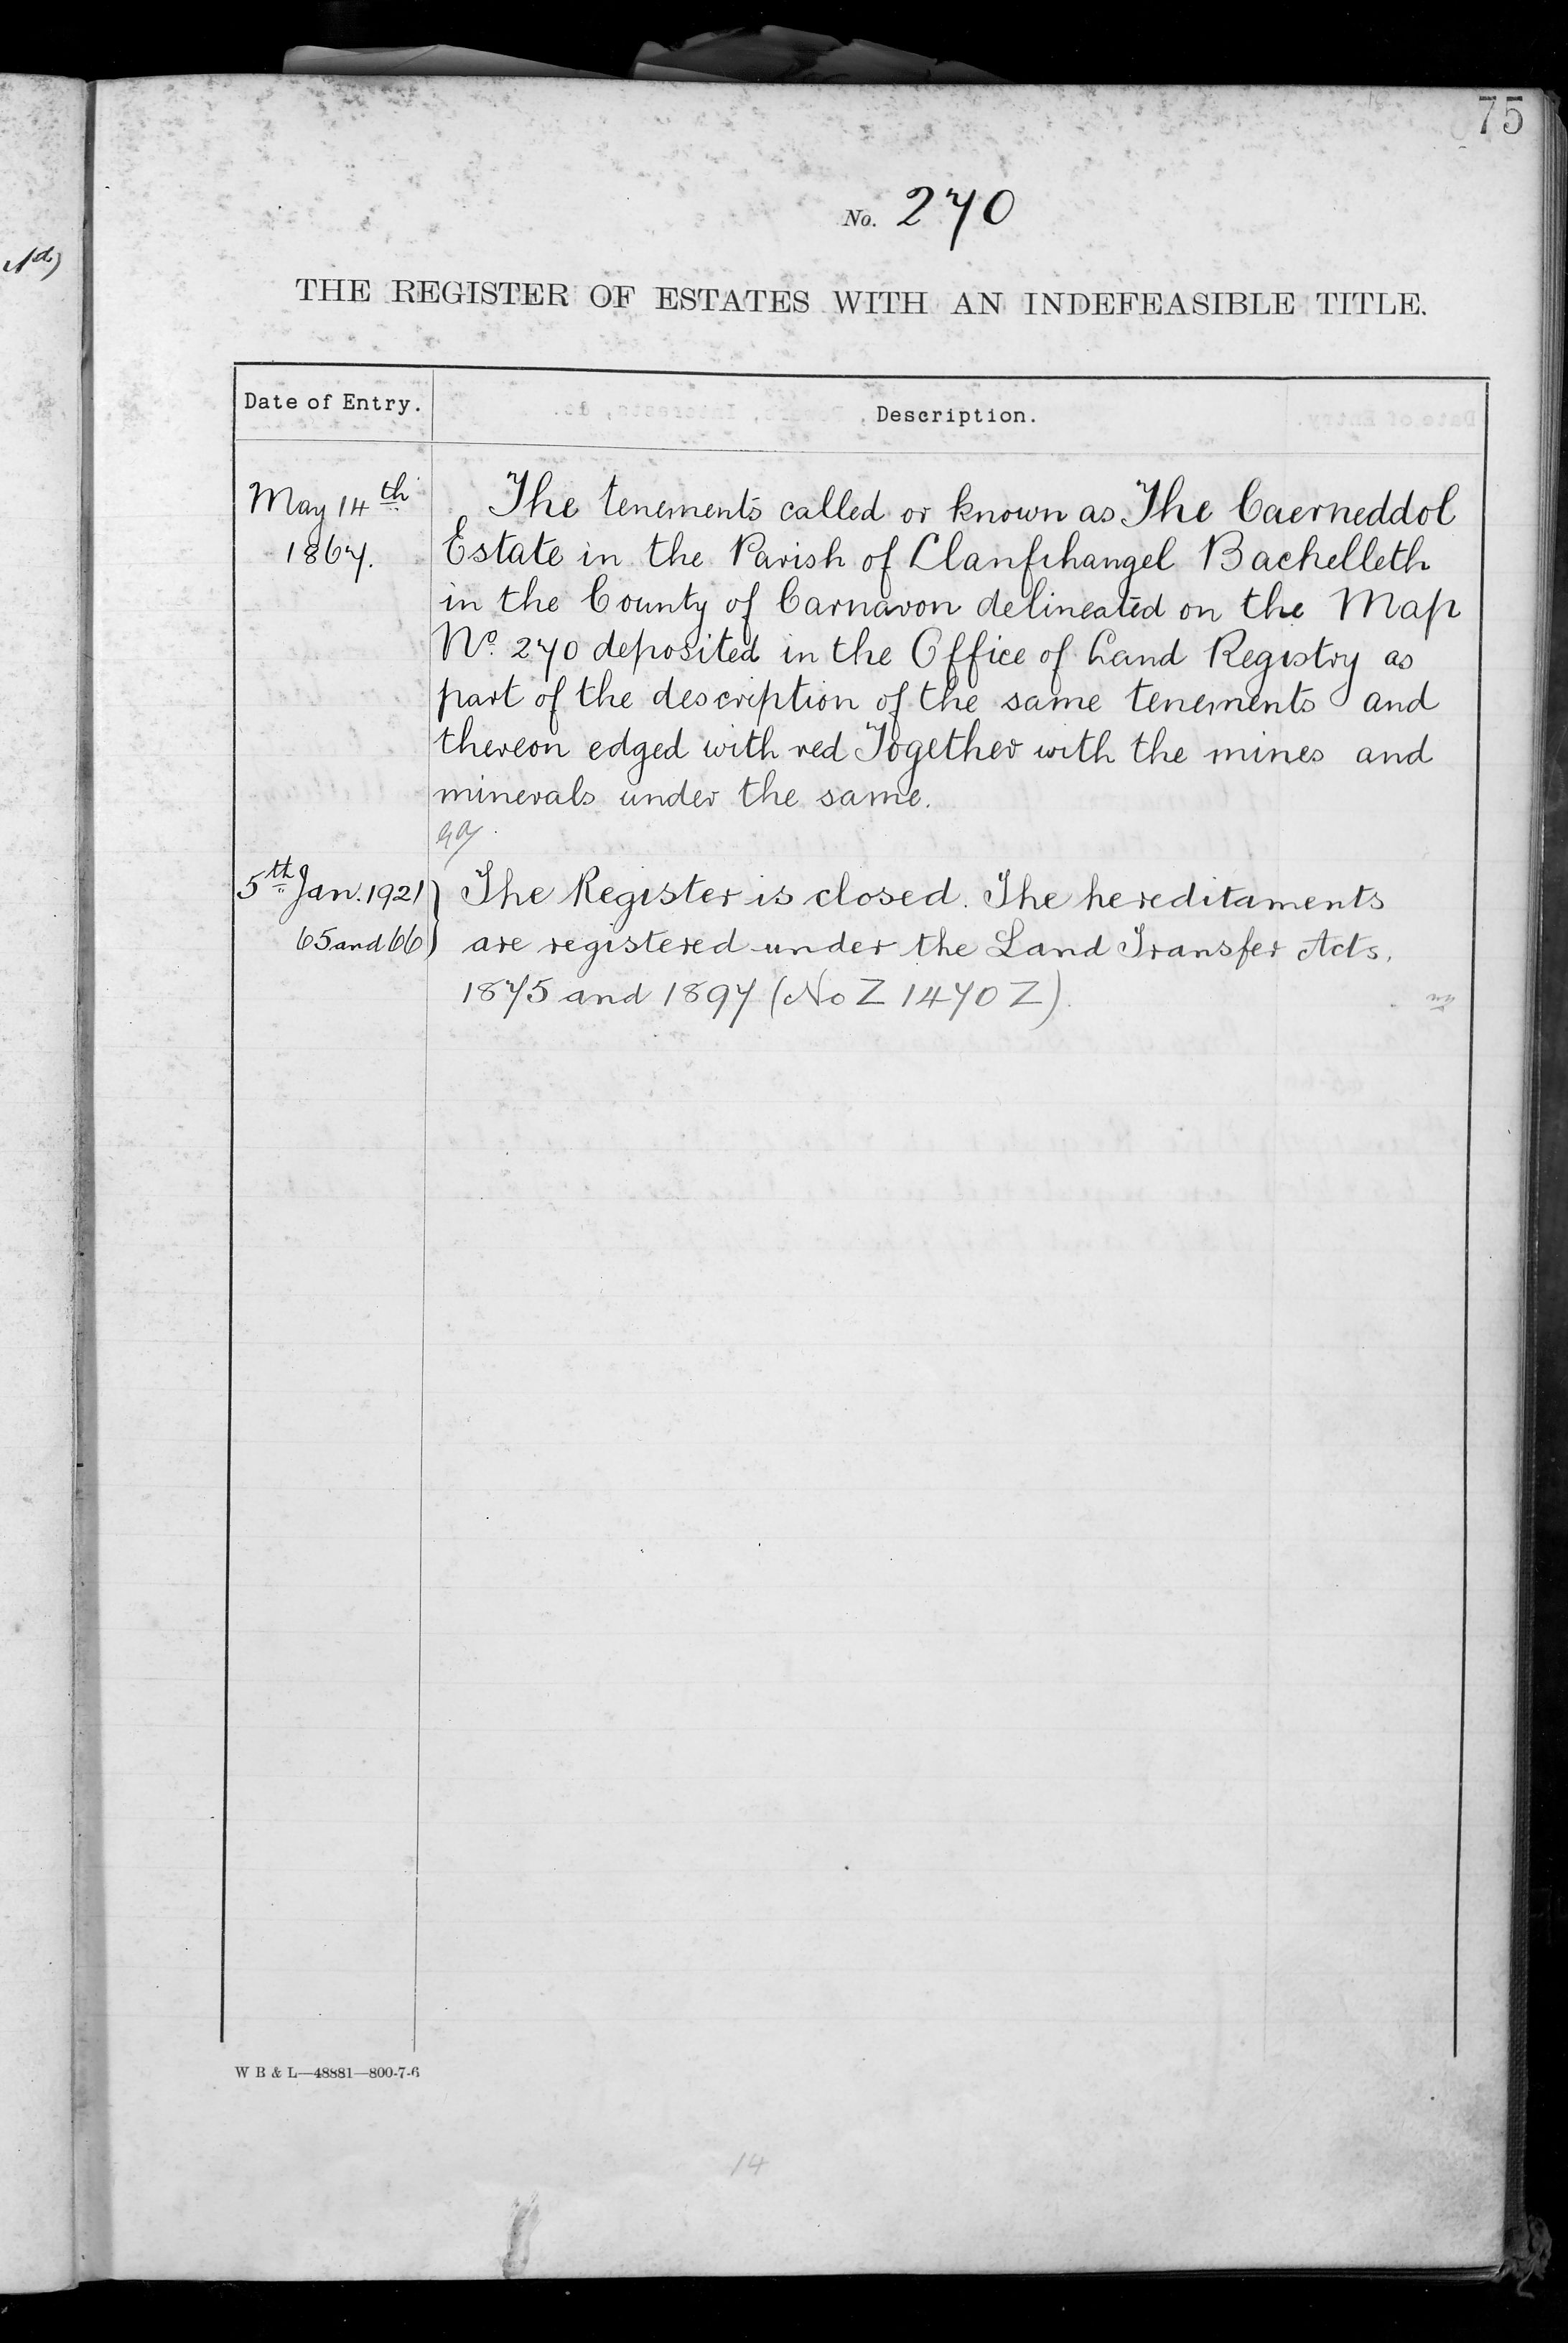 75
No. 270
THE REGISTER OF ESTATES WITH AN INDEFEASIBLE TITLE.
Date of Entry.
Description.
May 14th
1867.
The tenements called or known as The Caerneddol
Estate in the Parish of Llanfihangel Bachelleth
in the County of Carnavon delineated on the Map
No. 270 deposited in the Office of Land Registry as
part of the description of the same tenements and
thereon edged with red Together with the mines and
minerals under the same.
5th Jan. 1921
65 and 66
The Register is closed. The hereditaments
are registered under the Land Transfer Acts,
1875 and 1897 (No Z 1470 Z).
W B & L—48881—800-7-6
14